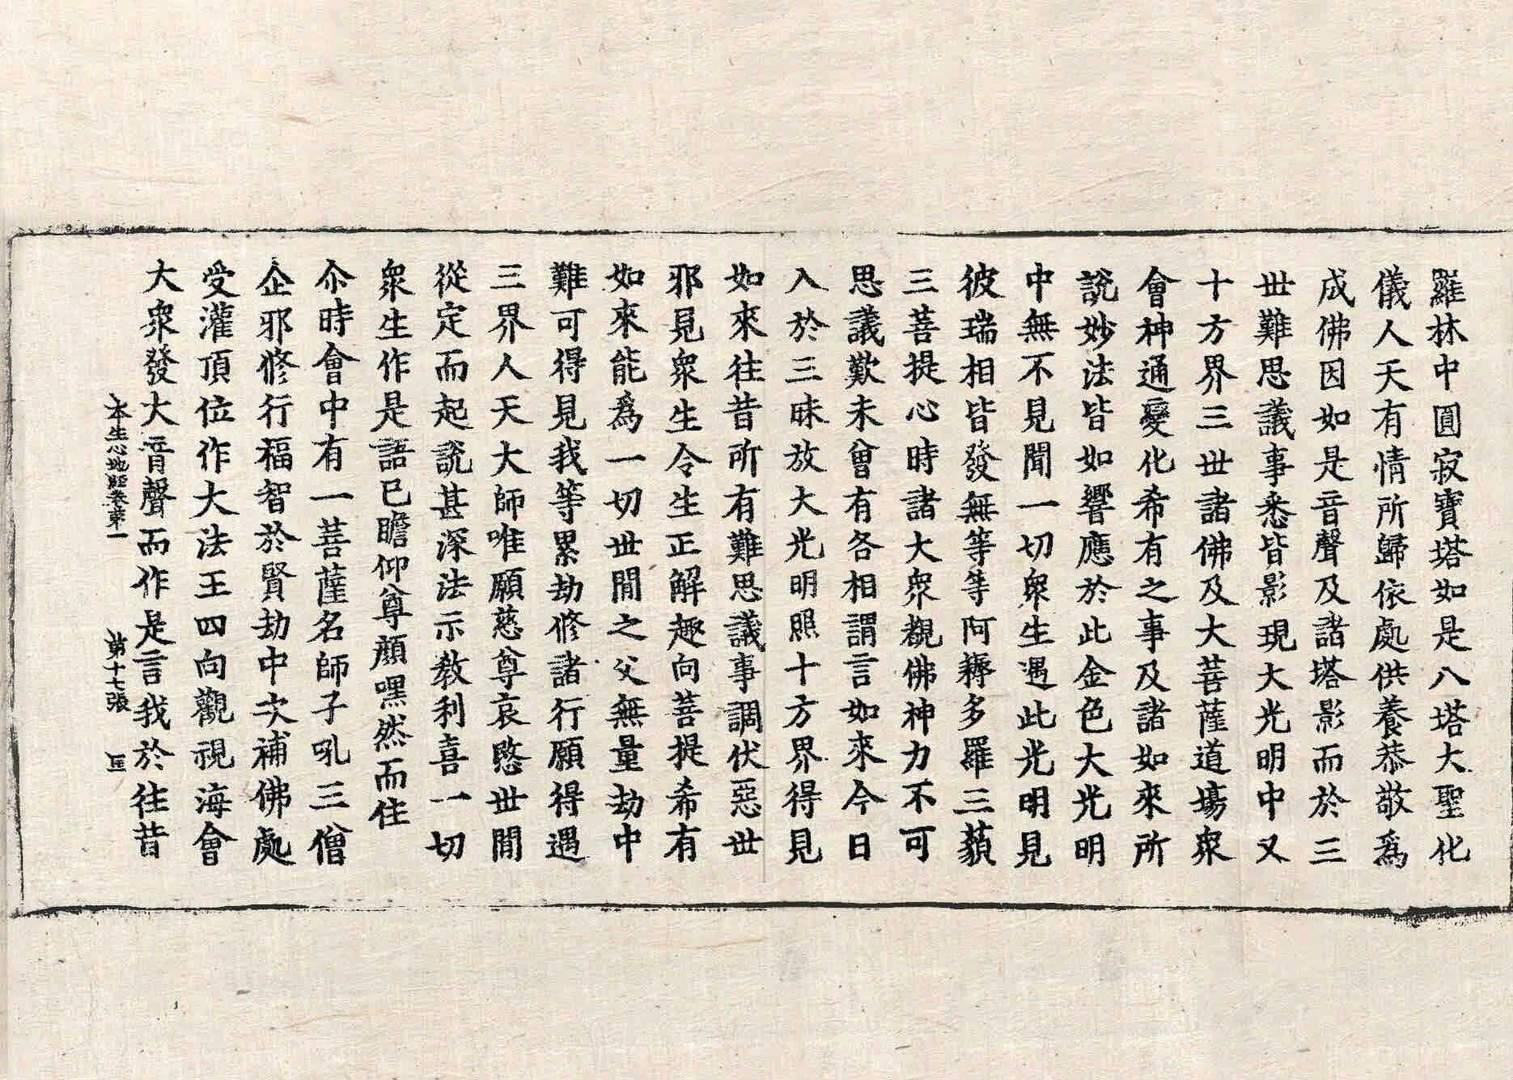 羅林中圓寂寶塔如是八塔大聖化
儀人天有情所歸依處供養恭敬爲
成佛因如是音聲及諸塔影而於三
世難思議事悉皆影現大光明中又
十方界三世諸佛及大菩薩道場衆
會神通變化希有之事及諸如來所
說妙法皆如響應於此金色大光明
中無不見聞一切衆生遇此光明見
彼瑞相皆發無等等阿耨多羅三藐
三菩提心時諸大衆覩佛神力不可
思議歎未曾有各相謂言如來今日
入於三昧放大光明照十方界得見
如來往昔所有難思議事調伏惡世
邪見衆生令生正解趣向菩提希有
如來能爲一切世間之父無量劫中
難可得見我等累劫修諸行願得遇
三界人天大師唯願慈尊哀愍世間
從定而起說甚深法示教利喜一切
衆生作是語已瞻仰尊顔嘿然而住
尒時會中有一菩薩名師子吼三僧
企邪修行福智於賢劫中次補佛處
受灌頂位作大法王四向觀視海會
大衆發大音聲而作是言我於往昔
本生心地經卷第一 第十七張 匡